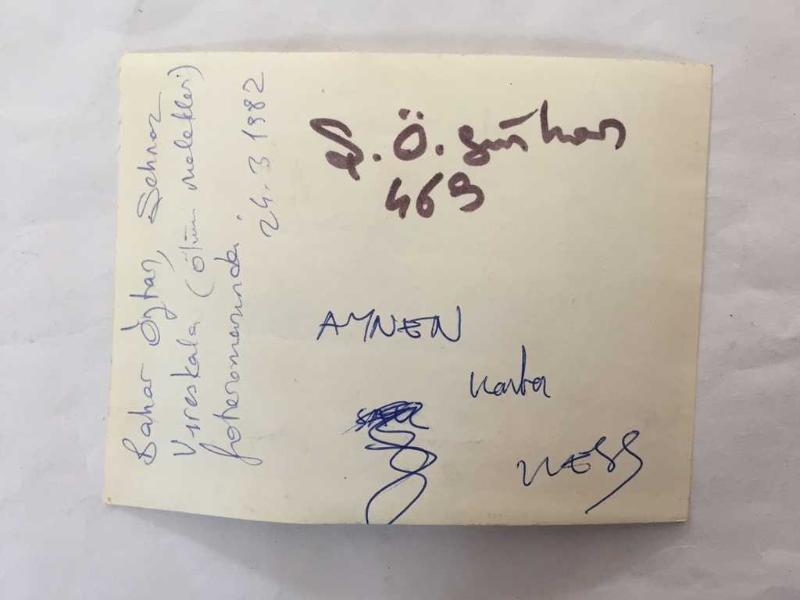 Bahar Öztan, Şehnaz
Vıreskala (Ölüm melekleri)
fotoromanında.
24.3.1982
Ş.Ö. Gürkan
469
AYNEN